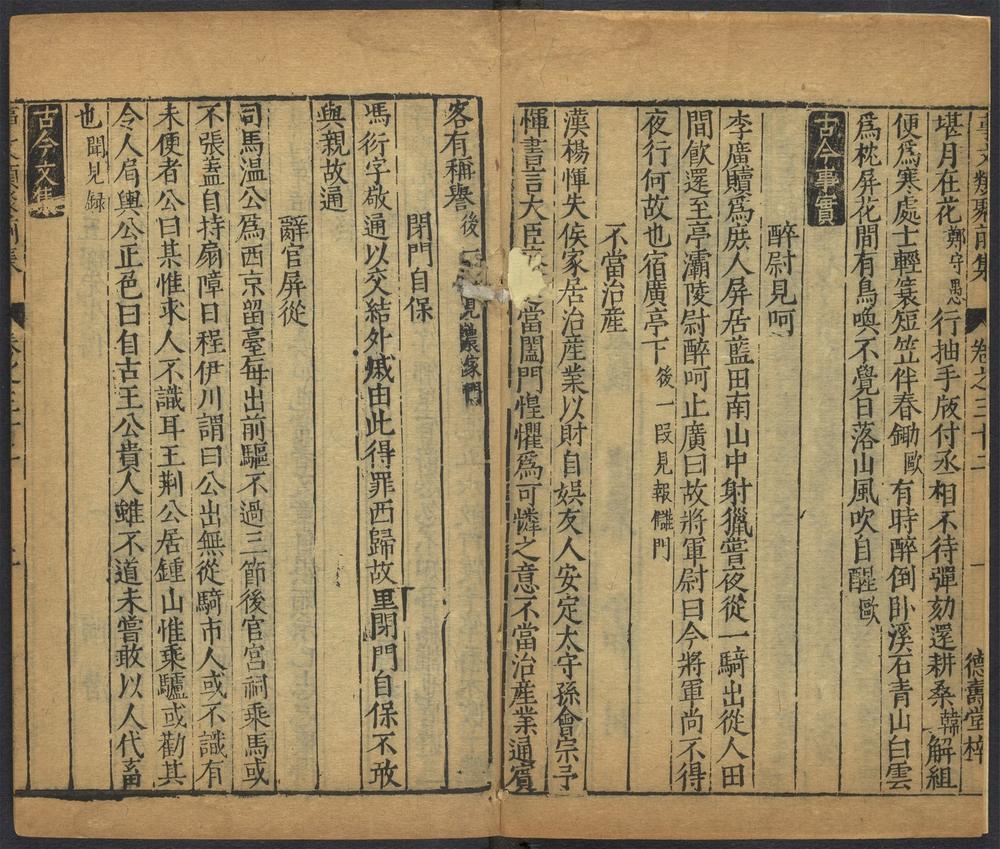 事文類聚前集 卷之三十二 一 德壽堂梓
堪月在花鄭守愚行抽手版付丞相不待彈劾還耕桑韓解組
便爲寒處士輕簑短笠伴春鋤歐有時醉倒卧溪石青山白雲
爲枕屏花間有鳥喚不覺日落山風吹自醒歐
古今事實
醉尉見呵
李廣贖爲庶人屏居藍田南山中射獵嘗夜從一騎出從人田
間飲還至亭灞陵尉醉呵止廣曰故將軍尉曰今將軍尚不得
夜行何故也宿廣亭下後一段見報讎門
不當治産
漢楊惲失侯家居治産業以財自娛友人安定太守孫會宗予
惲書言大臣當闔門惶懼爲可憐之意不當治産業通賓
客有稱譽後見農家門
閉門自保
馮衍字敬通以交結外戚由此得罪西歸故里閉門自保不敢
與親故通
辭官屏從
司馬温公爲西京留臺每出前驅不過三節後官宮祠乘馬或
不張蓋自持扇障日程伊川謂曰公出無從騎市人或不識有
未便者公曰某惟求人不識耳王荆公居鍾山惟乘驢或勸其
令人肩輿公正色曰自古王公貴人雖不道未嘗敢以人代畜
也聞見録
古今文集